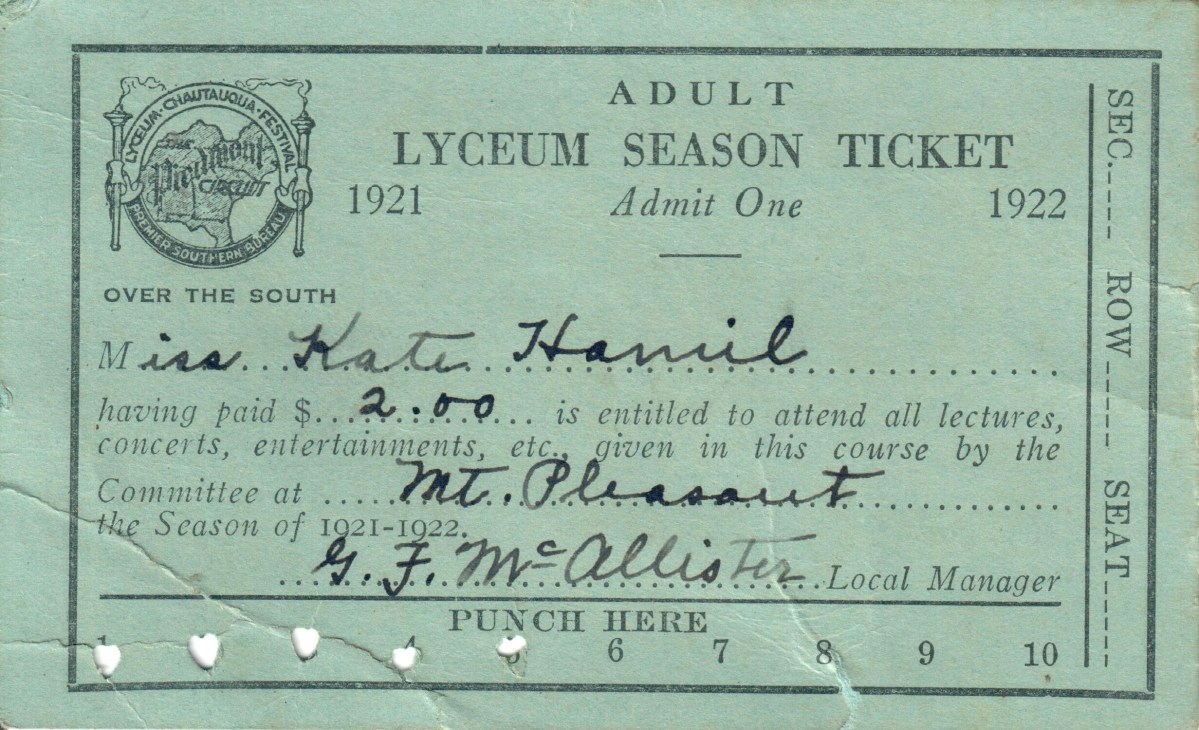 ADULT
LYCEUM SEASON TICKET
1921 Admit One 1922
LYCEUM · CHAUTAUQUA · FESTIVAL
The
Piedmont
CIRCUIT
PREMIER SOUTHERN BUREAU
OVER THE SOUTH
Miss Kate Hamil
having paid $ 2.00 is entitled to attend all lectures,
concerts, entertainments, etc., given in this course by the
Committee at Mt. Pleasant
the Season of 1921-1922.
G. F. McAllister Local Manager
PUNCH HERE
1 4 5 6 7 8 9 10
SEC. ROW SEAT